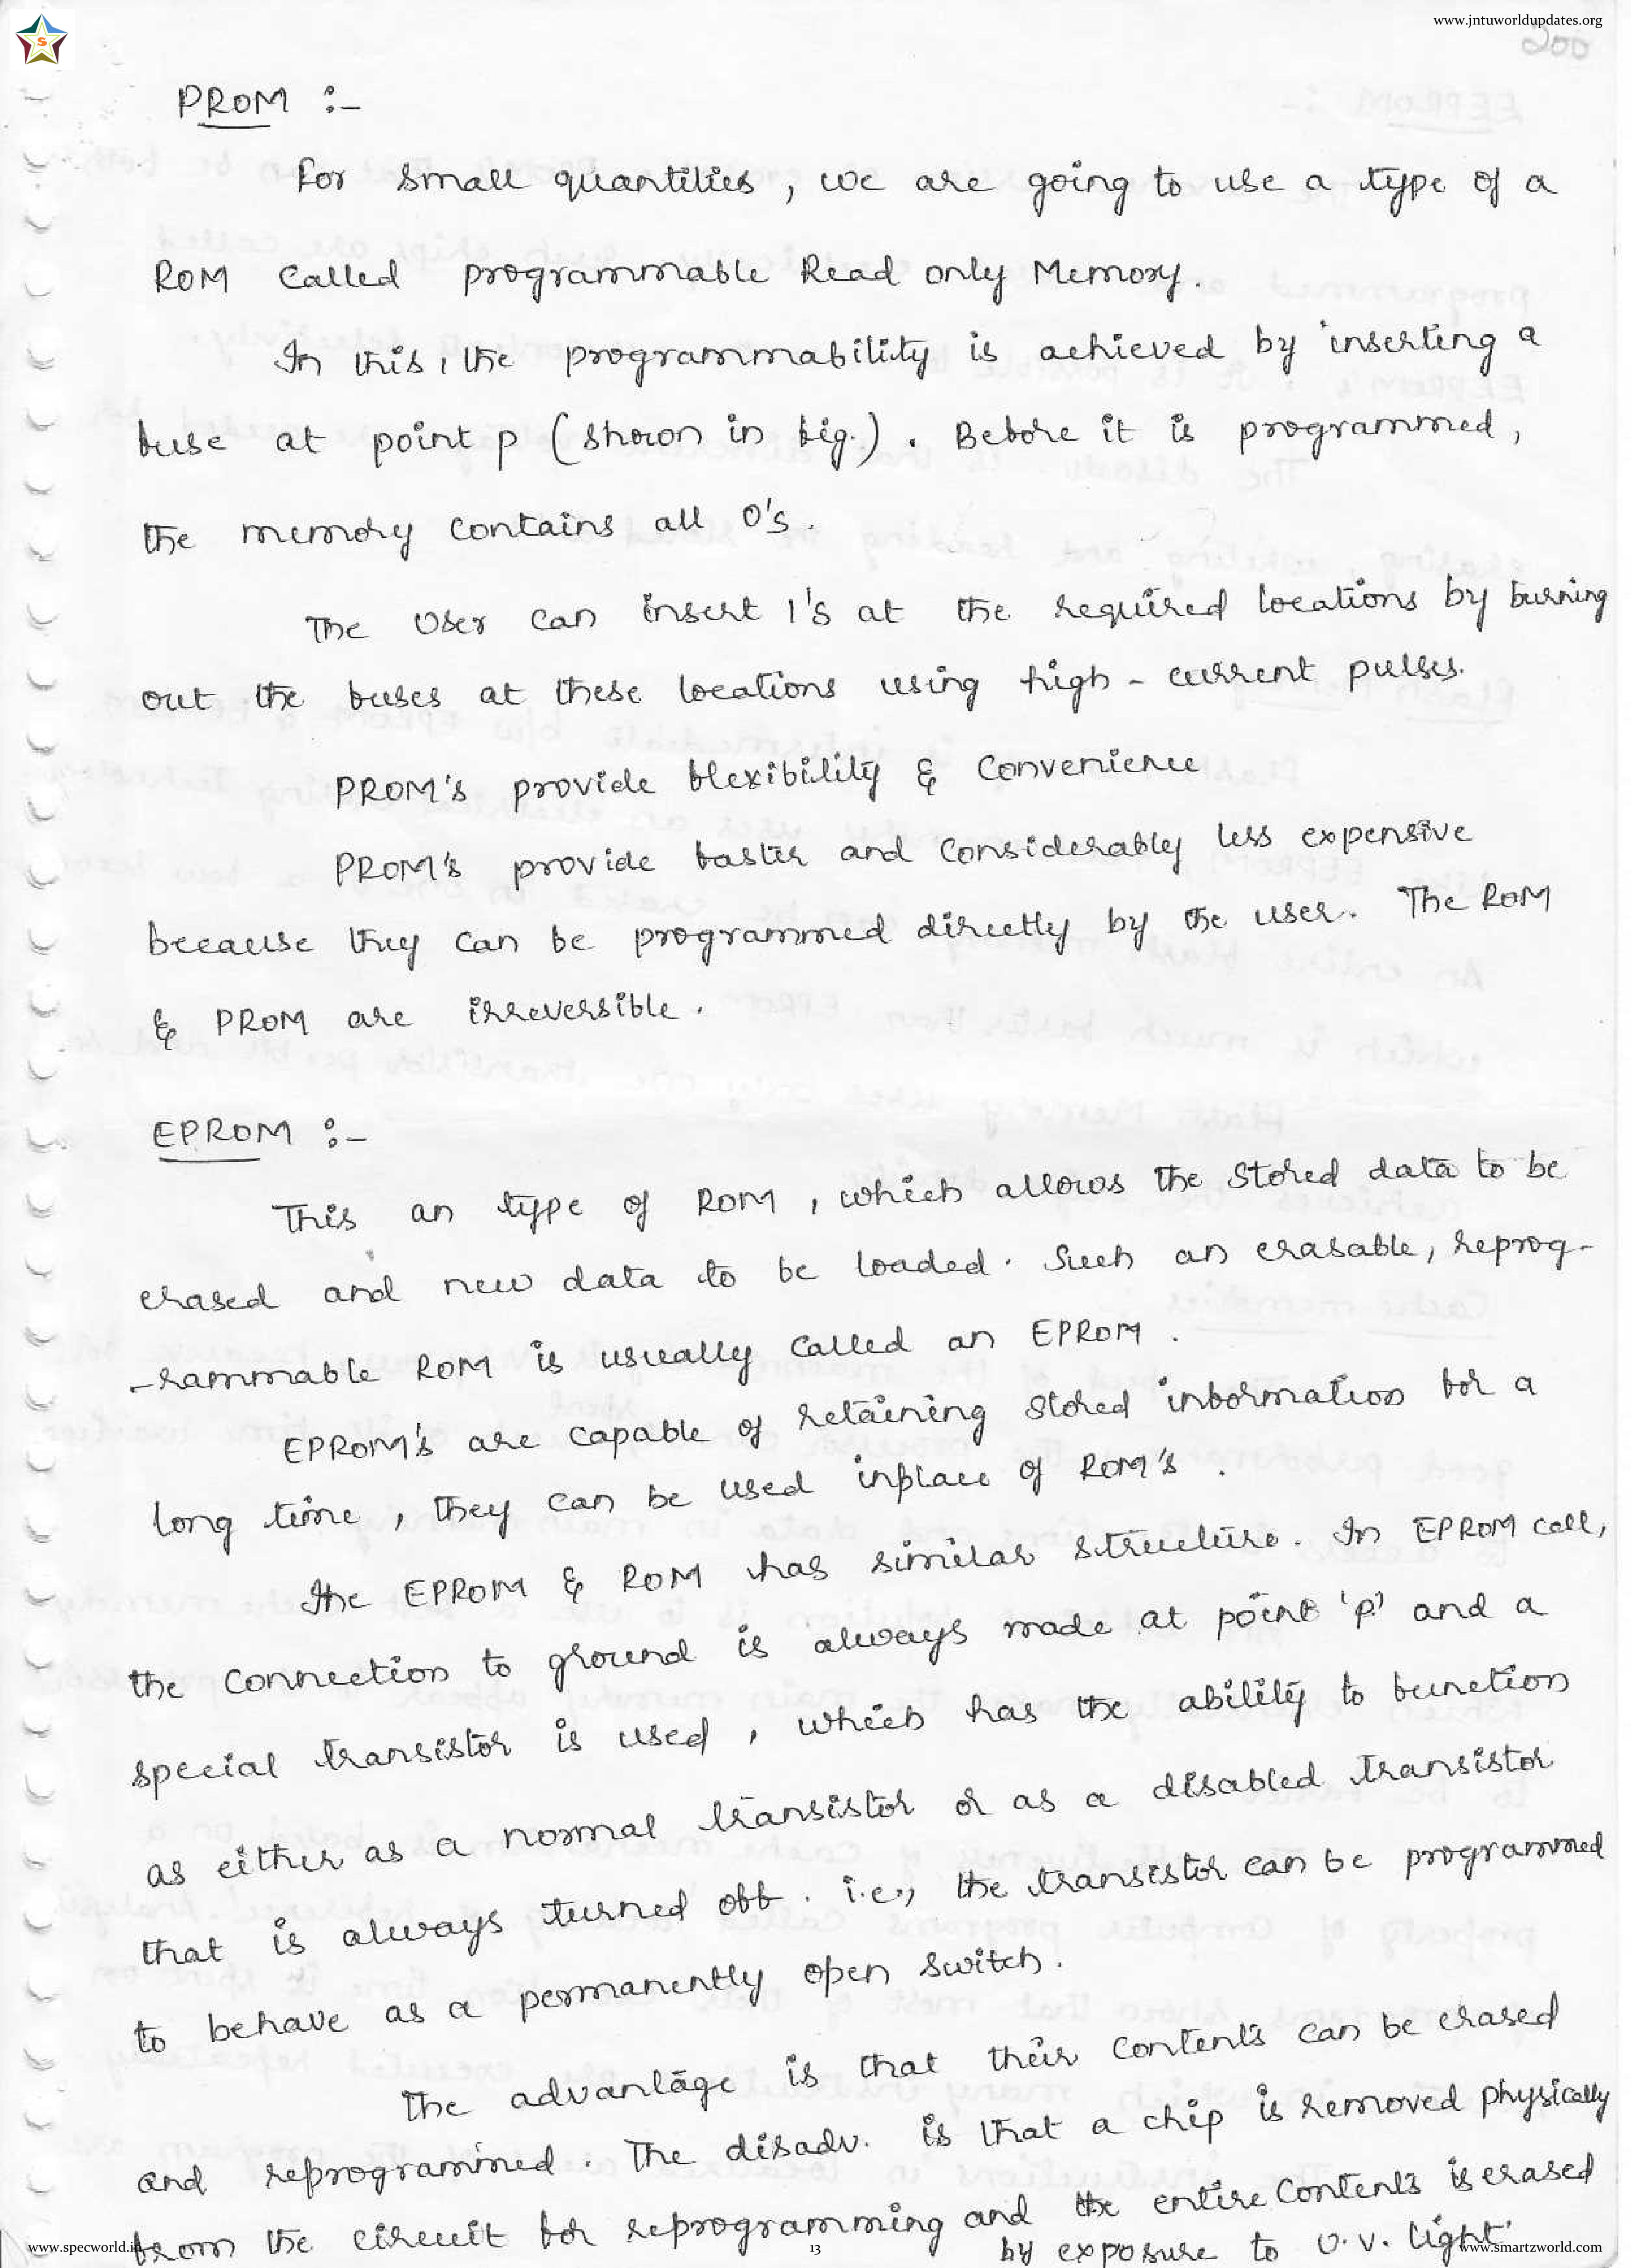 www.jntuworldupdates.org
S
200
PROM :-
For small quantities, we are going to use a type of a
ROM called programmable Read only Memory.
In this, the programmability is achieved by inserting a
fuse at point p (shown in fig.). Before it is programmed,
the memory contains all 0's.
The User can insert 1's at the required locations by burning
out the fuses at these locations using high-current pulses.
PROM's provide flexibility & convenience
PROM's provide faster and considerably less expensive
because they can be programmed directly by the user. The ROM
& PROM are irreversible.
EPROM :-
This an type of ROM, which allows the stored data to be
erased and new data to be loaded. Such an erasable, reprog-
-rammable ROM is usually called an EPROM.
EPROM's are capable of retaining stored information for a
long time, they can be used inplace of ROM's.
The EPROM & ROM has similar structure. In EPROM cell,
the connection to ground is always made at point 'p' and a
special transistor is used, which has the ability to function
as either as a normal transistor or as a disabled transistor
that is always turned off. i.e., the transistor can be programmed
to behave as a permanently open switch.
The advantage is that their contents can be erased
and reprogrammed. The disadv. is that a chip is removed physically
from the circuit for reprogramming and the entire contents is erased
by exposure to U.V. light.
www.specworld.in
13
www.smartzworld.com